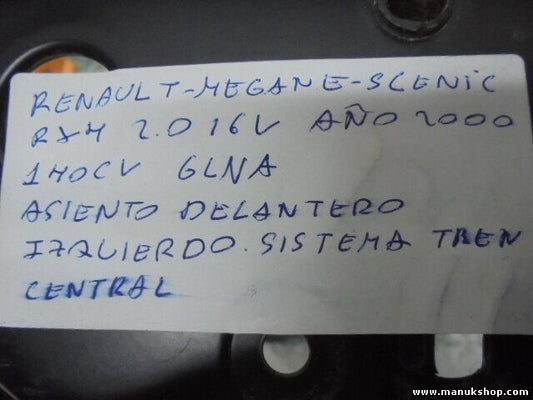 RENAULT-MEGANE-SCENIC
RX4 2.0 16V AÑO 2000
140CV GLNA
ASIENTO DELANTERO
IZQUIERDO. SISTEMA TREN
CENTRAL
www.manukshop.com